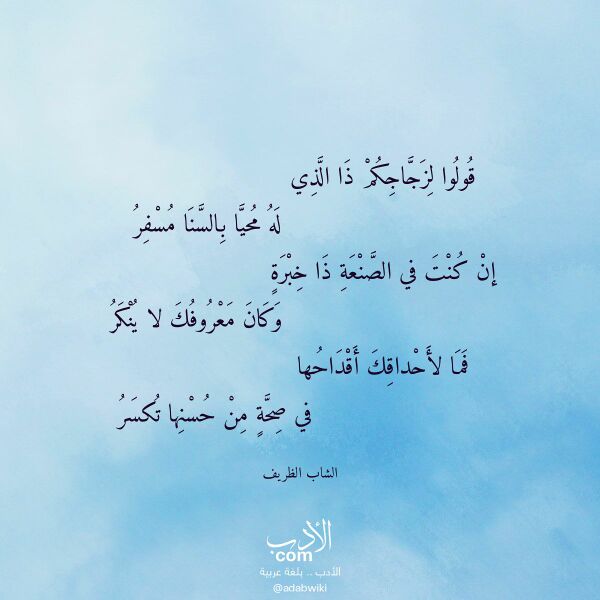 قُولُوا لِزَجَّاجِكُمْ ذَا الَّذِي
لَهُ مُحيَّا بِالسَّنَا مُسْفِرُ
إنْ كُنْتَ في الصَّنْعَةِ ذَا خِبْرَةٍ
وَكَانَ مَعْرُوفُكَ لا يُنْكَرُ
فَمَا لأَحْداقِكَ أَقْدَاحُها
في صِحَّةٍ مِنْ حُسْنِها تُكسَرُ
الشاب الظريف
الأدب
com
الأدب .. بلغة عربية
@adabwiki